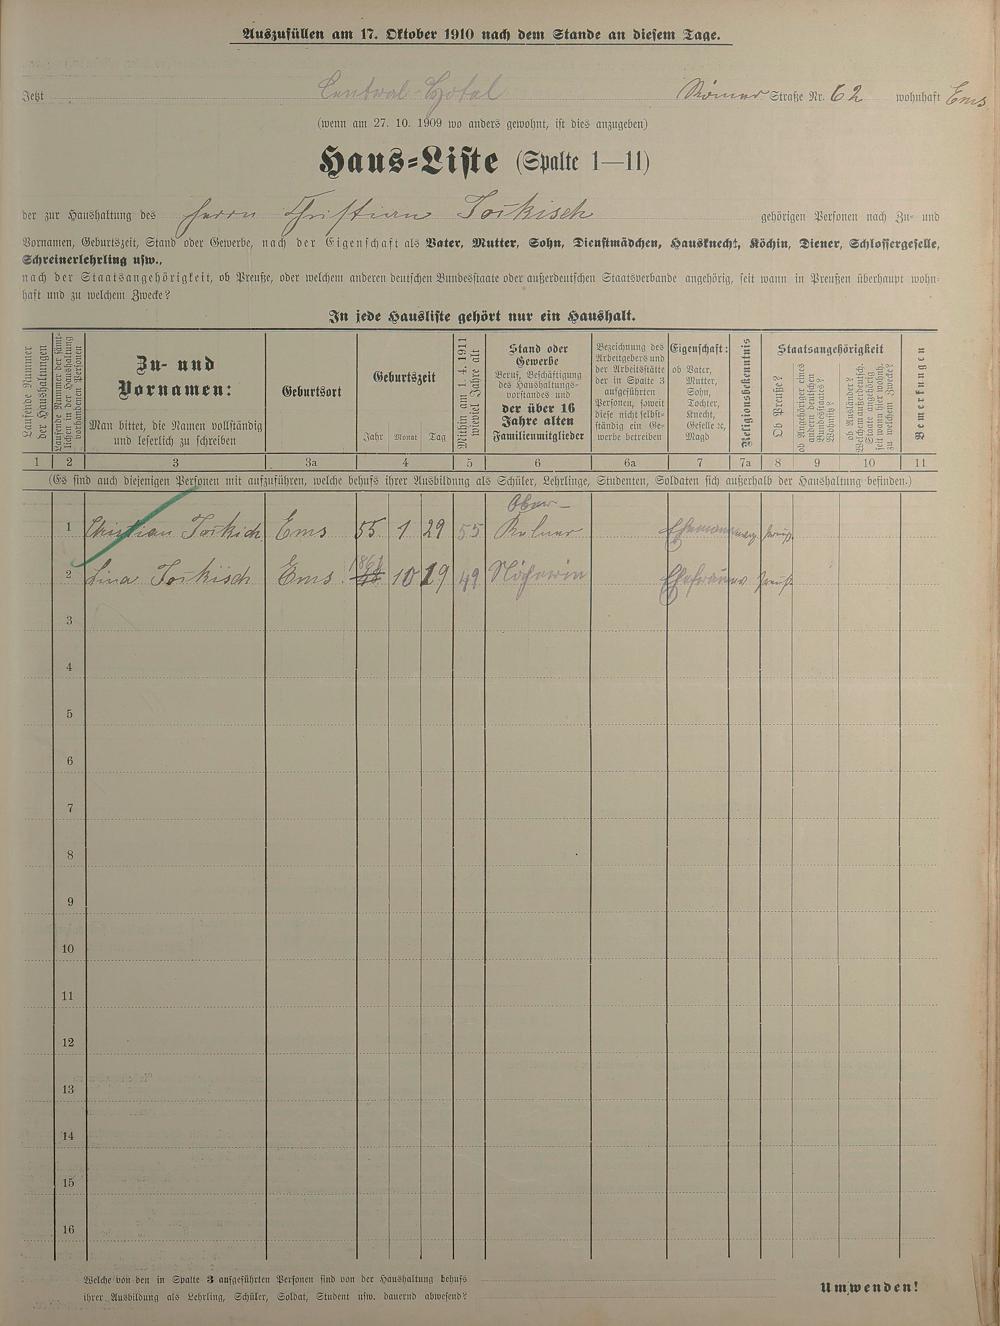 Auszufüllen am 17. Oktober 1910 nach dem Stande an diesem Tage.
Jetzt Central-Hotel Römer Straße Nr. 62 wohnhaft Ems
(wenn am 27. 10. 1909 wo anders gewohnt, ist dies anzugeben)
Haus-Liste (Spalte 1—11)
der zur Haushaltung des Herrn Christian Torkisch gehörigen Personen nach Zu- und
Vornamen, Geburtszeit, Stand oder Gewerbe, nach der Eigenschaft als Vater, Mutter, Sohn, Dienstmädchen, Hausknecht, Köchin, Diener, Schlossergeselle,
Schreinerlehrling usw.,
nach der Staatsangehörigkeit, ob Preuße, oder welchem anderen deutschen Bundesstaate oder außerdeutschen Staatsverbande angehörig, seit wann in Preußen überhaupt wohn-
haft und zu welchem Zwecke?
In jede Hausliste gehört nur ein Haushalt.
Laufende Nummer der Haushaltungen
Laufende Nummer der sämt-
lichen in der Haushaltung
vorhandenen Personen
Zu- und
Vornamen:
Man bittet, die Namen vollständig
und leserlich zu schreiben
Geburtsort
Geburtszeit
Jahr Monat Tag
Mithin am 1. 4. 1911
wieviel Jahre alt
Stand oder
Gewerbe
Beruf, Beschäftigung
des Haushaltungs-
vorstandes und
der über 16
Jahre alten
Familienmitglieder
Bezeichnung des
Arbeitgebers und
der Arbeitsstätte
der in Spalte 3
aufgeführten
Personen, soweit
diese nicht selbst-
ständig ein Ge-
werbe betreiben
Eigenschaft:
ob Vater,
Mutter,
Sohn,
Tochter,
Knecht,
Geselle ꝛc,
Magd
Religionsbekenntnis
Staatsangehörigkeit
Ob Preuße?
ob Angehöriger eines
andern deutschen
Bundesstaates?
Wohnsitz?
ob Ausländer?
Welchem außerdeutsch.
Staate angehörig
seit wann hier wohnh.
zu welchem Zwecke?
Bemerkungen
1 2 3 3a 4 5 6 6a 7 7a 8 9 10 11
(Es sind auch diejenigen Personen mit aufzuführen, welche behufs ihrer Ausbildung als Schüler, Lehrlinge, Studenten, Soldaten sich außerhalb der Haushaltung befinden.)
Ober-
1 Christian Torkich Ems 55 1 29 55 Kelner Ehemann
2 Lina Torkisch Ems 10 19 49 Ehefrau
3
4
5
6
7
8
9
10
11
12
13
14
15
16
Welche von den in Spalte 3 aufgeführten Personen sind von der Haushaltung behufs
ihrer Ausbildung als Lehrling, Schüler, Soldat, Student usw. dauernd abwesend?
Umwenden!